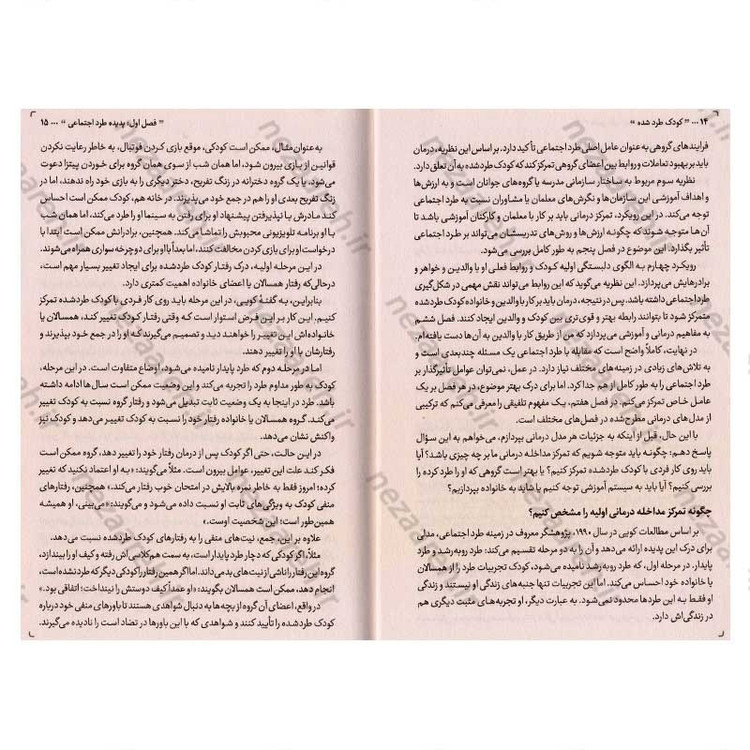 ۱۴ ... " کودک طرد شده "
فرایندهای گروهی به عنوان عامل اصلی طرد اجتماعی تأکید دارد. بر اساس این نظریه، درمان
باید بر بهبود تعاملات و روابط بین اعضای گروهی تمرکز کند که کودک طردشده به آن تعلق دارد.
نظریه سوم مربوط به ساختار سازمانی مدرسه یا گروه‌های جوانان است و به ارزش‌ها
و اهداف آموزشی این سازمان‌ها و نگرش‌های معلمان یا مشاوران نسبت به طرد اجتماعی
توجه می‌کند. در این رویکرد، تمرکز درمانی باید بر کار با معلمان و کارکنان آموزشی باشد تا
آن‌ها متوجه شوند که چگونه ارزش‌ها و روش‌های تدریسشان می‌تواند بر طرد اجتماعی
تأثیر بگذارد. این موضوع در فصل پنجم به طور کامل بررسی می‌شود.
رویکرد چهارم به الگوی دلبستگی اولیه کودک و روابط فعلی او با والدین و خواهر و
برادرهایش می‌پردازد. این نظریه می‌گوید که این روابط می‌تواند نقش مهمی در شکل‌گیری
طرد اجتماعی داشته باشد. پس در نتیجه، درمان باید بر کار با والدین و خانواده کودک طردشده
متمرکز شود تا بتوانند رابطه بهتر و قوی‌تری بین کودک و والدین ایجاد کنند. فصل ششم
به مفاهیم درمانی و آموزشی می‌پردازد که من از طریق کار با والدین به آن‌ها دست یافته‌ام.
در نهایت، کاملاً واضح است که مقابله با طرد اجتماعی یک مسئله چندبعدی است و
به تلاش‌های زیادی در زمینه‌های مختلف نیاز دارد. در عمل، نمی‌توان عوامل تأثیرگذار بر
طرد اجتماعی را به طور کامل از هم جدا کرد. اما برای درک بهتر موضوع، در هر فصل بر یک
عامل خاص تمرکز می‌کنم. در فصل هفتم، یک مفهوم تلفیقی را معرفی می‌کنم که ترکیبی
از مدل‌های درمانی مطرح‌شده در فصل‌های مختلف است.
با این حال، قبل از آنکه به جزئیات هر مدل درمانی بپردازم، می‌خواهم به این سؤال
پاسخ دهم: چگونه باید متوجه شویم که تمرکز مداخله درمانی ما بر چه چیزی باشد؟ آیا
باید روی کار فردی با کودک طردشده تمرکز کنیم؟ یا بهتر است گروهی که او را طرد کرده را
بررسی کنیم؟ آیا باید به سیستم آموزشی توجه کنیم یا شاید به خانواده بپردازیم؟
چگونه تمرکز مداخله درمانی اولیه را مشخص کنیم؟
بر اساس مطالعات کویی در سال ۱۹۹۰، پژوهشگر معروف در زمینه طرد اجتماعی، مدلی
برای درک این پدیده ارائه می‌دهد و آن را به دو مرحله تقسیم می‌کند: طرد روبه‌رشد و طرد
پایدار. در مرحله اول، که طرد روبه‌رشد نامیده می‌شود، کودک تجربیات طرد را از همسالان
یا خانواده خود احساس می‌کند. اما این تجربیات تنها جنبه‌های زندگی او نیستند و زندگی
او فقط به این طردها محدود نمی‌شود. به عبارت دیگر، او تجربه‌های مثبت دیگری هم
در زندگی‌اش دارد.
" فصل اول: پدیده طرد اجتماعی " ... ۱۵
به عنوان مثال، ممکن است کودکی، موقع بازی کردن فوتبال، به خاطر رعایت نکردن
قوانین از بازی بیرون شود، اما همان شب از سوی همان گروه برای خوردن پیتزا دعوت
می‌شود. یا یک گروه دخترانه در زنگ تفریح، دختر دیگری را به بازی خود راه ندهند، اما در
زنگ تفریح بعدی او را هم در جمع خود می‌پذیرند. در خانه هم، کودک ممکن است احساس
کند مادرش با نپذیرفتن پیشنهاد او برای رفتن به سینما او را طرد می‌کند، اما همان شب
با او برنامه تلویزیونی محبوبش را تماشا می‌کند. همچنین، برادرانش ممکن است ابتدا با
درخواست او برای بازی کردن مخالفت کنند، اما بعداً با او برای دوچرخه سواری همراه می‌شوند.
در این مرحله اولیه، درک رفتار کودک طردشده برای ایجاد تغییر بسیار مهم است،
درحالی‌که رفتار همسالان یا اعضای خانواده اهمیت کمتری دارد.
بنابراین، به گفتهٔ کویی، در این مرحله باید روی کار فردی با کودک طردشده تمرکز
کنیم. این کار بر این فرض استوار است که وقتی رفتار کودک تغییر کند، همسالان یا
خانواده‌اش این تغییر را خواهند دید و تصمیم می‌گیرند که او را در جمع خود بپذیرند و
رفتارشان با او را تغییر دهند.
اما در مرحله دوم که طرد پایدار نامیده می‌شود، اوضاع متفاوت است. در این مرحله،
کودک به طور مداوم طرد را تجربه می‌کند و این وضعیت ممکن است سال‌ها ادامه داشته
باشد. طرد در اینجا به یک وضعیت ثابت تبدیل می‌شود و رفتار گروه نسبت به کودک تغییر
می‌کند. گروه همسالان یا خانواده رفتار خود را نسبت به کودک تغییر می‌دهد و کودک نیز
واکنش نشان می‌دهد.
در این حالت، حتی اگر کودک پس از درمان رفتار خود را تغییر دهد، گروه ممکن است
فکر کند علت این تغییر، عوامل بیرون است. مثلاً می‌گویند: «به او اعتماد نکنید که تغییر
کرده؛ امروز فقط به خاطر نمره بالایش در امتحان خوب رفتار می‌کند.» همچنین، رفتارهای
منفی کودک به ویژگی‌های ثابت او نسبت داده می‌شود و می‌گویند: «می‌بینی، او همیشه
همین‌طور است؛ این شخصیت اوست.»
علاوه بر این، جمع، نیت‌های منفی را به رفتارهای کودک طردشده نسبت می‌دهد.
مثلاً، اگر کودکی که دچار طرد پایدار است، به سمت هم‌کلاسی‌اش رفته و کیف او را بیندازد،
گروه این رفتار را ناشی از نیت‌های بد می‌داند. اما اگر همین رفتار را کودکی دیگر که طرد نشده است
انجام دهد، ممکن است همسالان بگویند: «او عمداً کیف دوستش را نینداخت؛ اتفاقی بود.»
در واقع، اعضای آن گروه از بچه‌ها به دنبال شواهدی هستند تا باورهای منفی خود درباره
کودک طردشده را تأیید کنند و شواهدی که با این باورها در تضاد است را نادیده می‌گیرند.
nezaareh.ir